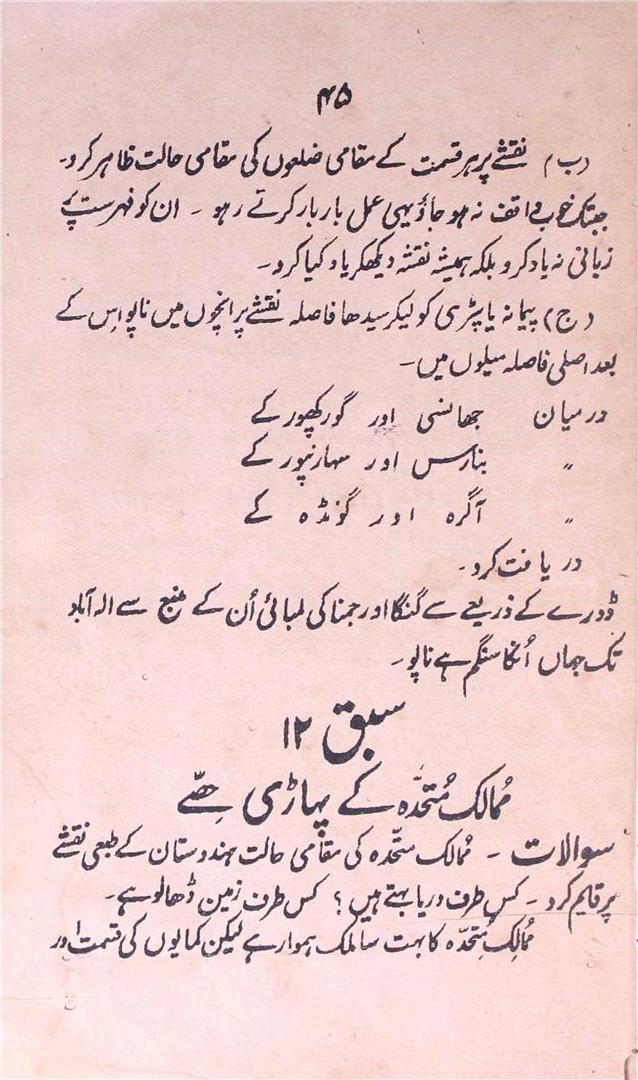 ۴۵
(ب) نقشے پر ہر قسمت کے مقامی ضلعوں کی مقامی حالت ظاہر کرو۔
جبتک خوب واقف نہ ہو جاؤ یہی عمل بار بار کرتے رہو ۔ ان کو فہرست پر
زبانی نہ یاد کرو بلکہ ہمیشہ نقشہ دیکھکر یاد کیا کرو۔
(ج) پیمانہ یا پٹری کو لیکر سیدھا فاصلہ نقشے پر انچوں میں ناپو اس کے
بعد اصلی فاصلہ میلوں میں۔
درمیان جھانسی اور گورکھپور کے
〃 بنارس اور سہارنپور کے
〃 آگرہ اور گونڈہ کے
دریافت کرو۔
ڈورے کے ذریعے سے گنگا اور جمنا کی لمبائی اُن کے منبع سے الہ آباد
تک جہاں اُنکا سنگم ہے ناپو۔
سبق ۱۲
مُمالک مُتحدّہ کے پہاڑی حِصّے
سوالات ۔ مُمالک متحّدہ کی مقامی حالت ہندوستان کے طبعی نقشے
پر قایم کرو ۔ کس طرف دریا بہتے ہیں ؟ کس طرف زمین ڈھالو ہے۔
مُمالِک مُتحدّہ کا بہت سا ملک ہموار ہے لیکن کمایوں کی قسمت اور